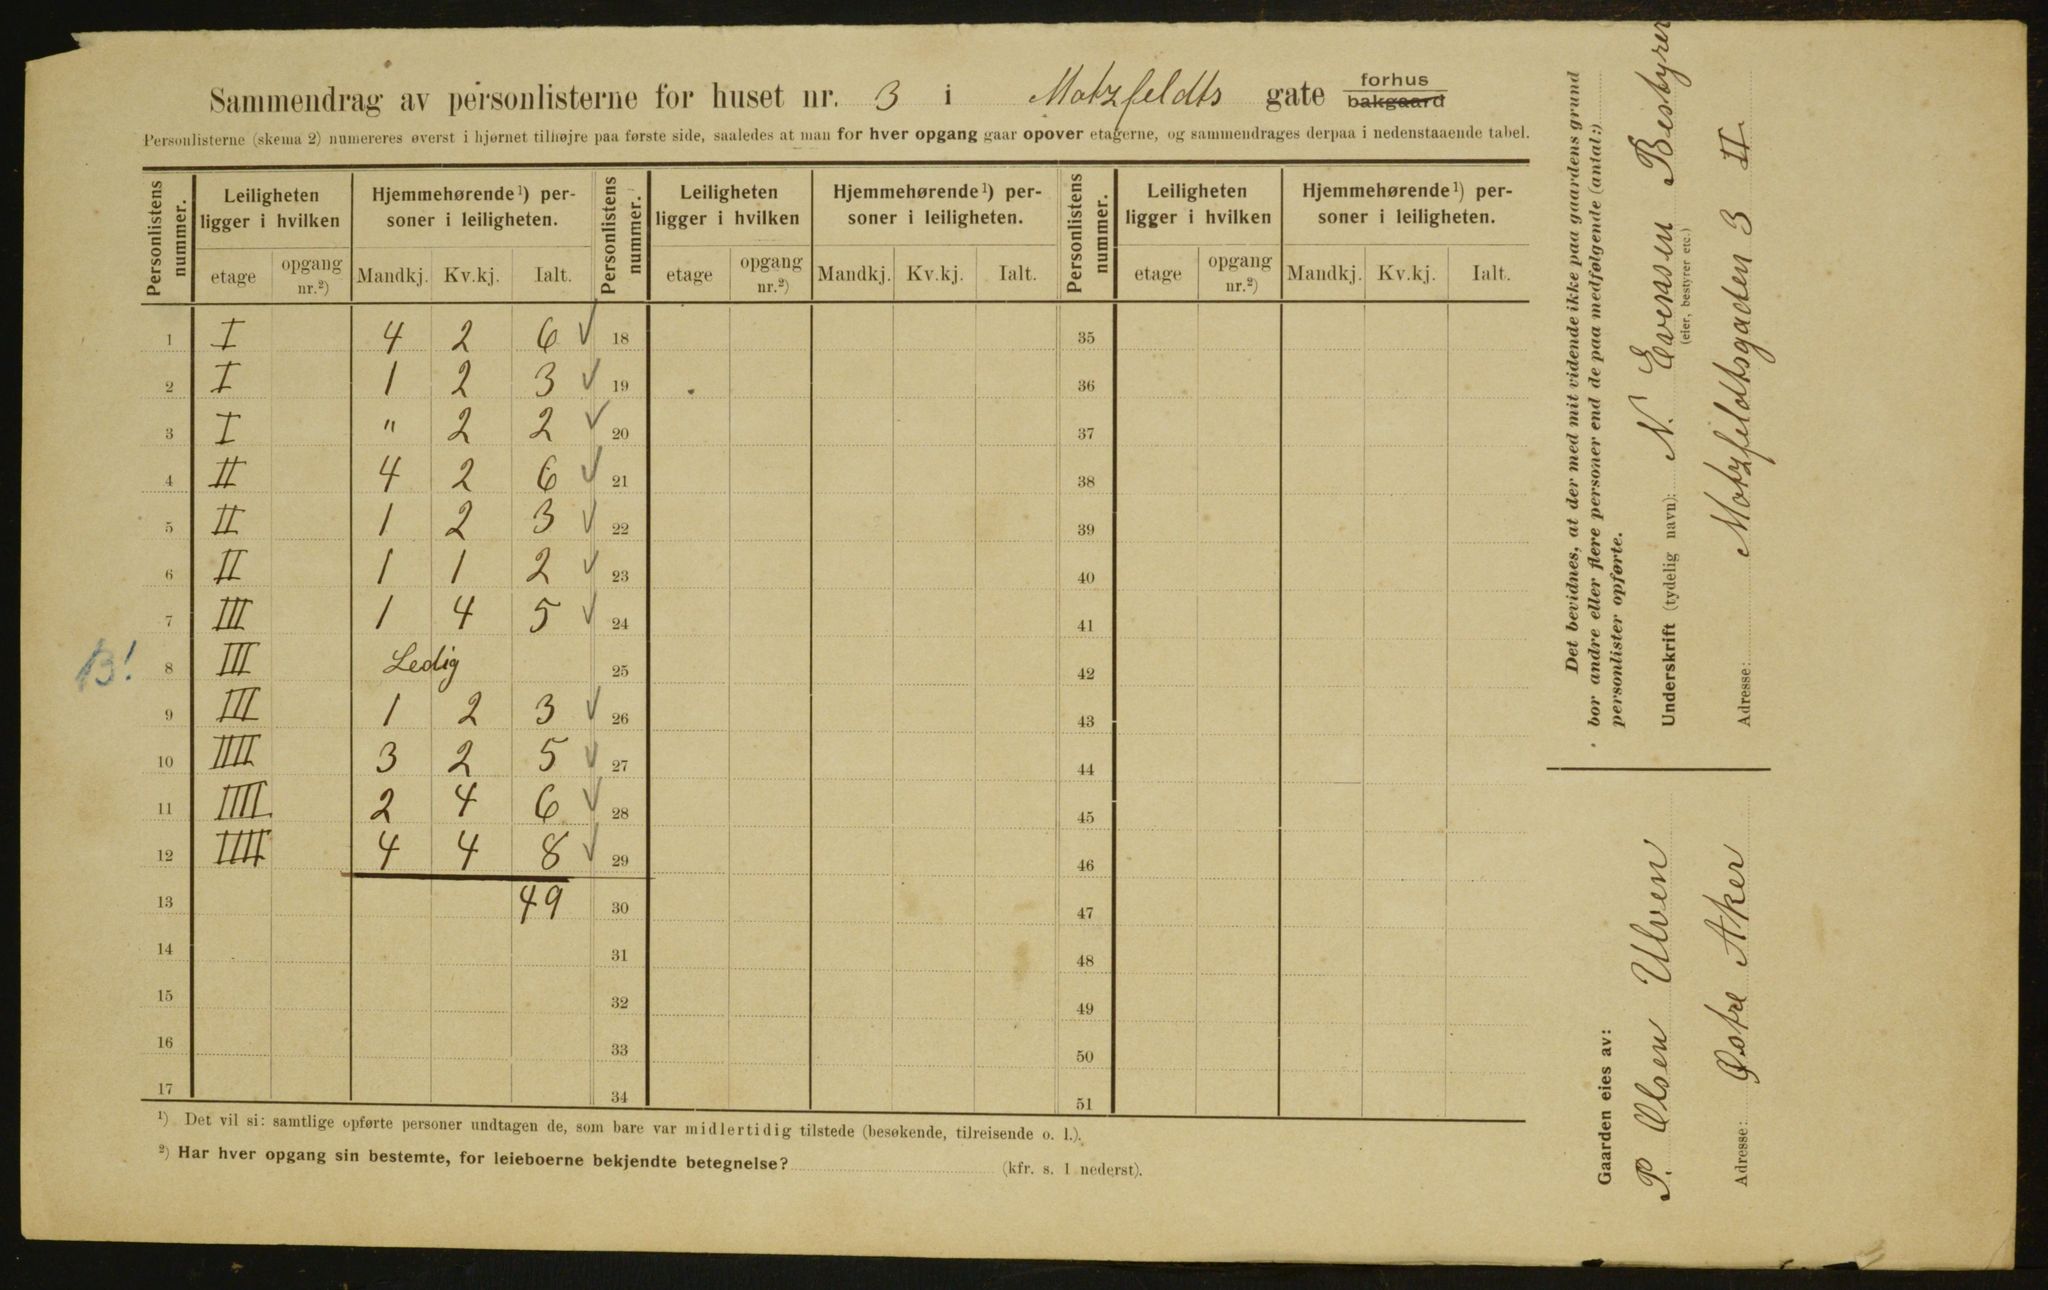 Sammendrag av personlisterne for huset nr. 3 i Motzfeldts gate forhus bakgaard
Personlisterne (skema 2) numereres øverst i hjørnet tilhøjre paa første side, saaledes at man for hver opgang gaar opover etagerne, og sammendrages derpaa i nedenstaaende tabel.
Personlistens nummer. Leiligheten ligger i hvilken Hjemmehørende ¹) personer i leiligheten. Personlistens nummer. Leiligheten ligger i hvilken Hjemmehørende ¹) personer i leiligheten. Personlistens nummer. Leiligheten ligger i hvilken Hjemmehørende ¹) personer i leiligheten.
etage opgang nr.²) Mandkj. Kv.kj. Ialt. etage opgang nr.²) Mandkj. Kv.kj. Ialt. etage opgang nr.²) Mandkj. Kv.kj. Ialt.
1 I 4 2 6 ✓ 18 35
2 I 1 2 3 ✓ 19 36
3 I " 2 2 ✓ 20 37
4 II 4 2 6 ✓ 21 38
5 II 1 2 3 ✓ 22 39
6 II 1 1 2 ✓ 23 40
7 III 1 4 5 ✓ 24 41
B! 8 III Ledig 25 42
9 III 1 2 3 ✓ 26 43
10 IIII 3 2 5 ✓ 27 44
11 IIII 2 4 6 ✓ 28 45
12 IIII 4 4 8 ✓ 29 46
13 49 30 47
14 31 48
15 32 49
16 33 50
17 34 51
¹) Det vil si: samtlige opførte personer undtagen de, som bare var midlertidig tilstede (besøkende, tilreisende o. l.).
²) Har hver opgang sin bestemte, for leieboerne bekjendte betegnelse? (kfr. s. 1 nederst).
Det bevidnes, at der med mit vidende ikke paa gaardens grund
bor andre eller flere personer end de paa medfølgende (antal:)
personlister opførte.
Underskrift (tydelig navn): N. Evensen Bestyrer
(eier, bestyrer etc.)
Adresse: Motzfeldtsgaden 3 II.
Gaarden eies av:
P. Olsen Ulven
Adresse: Østre Aker